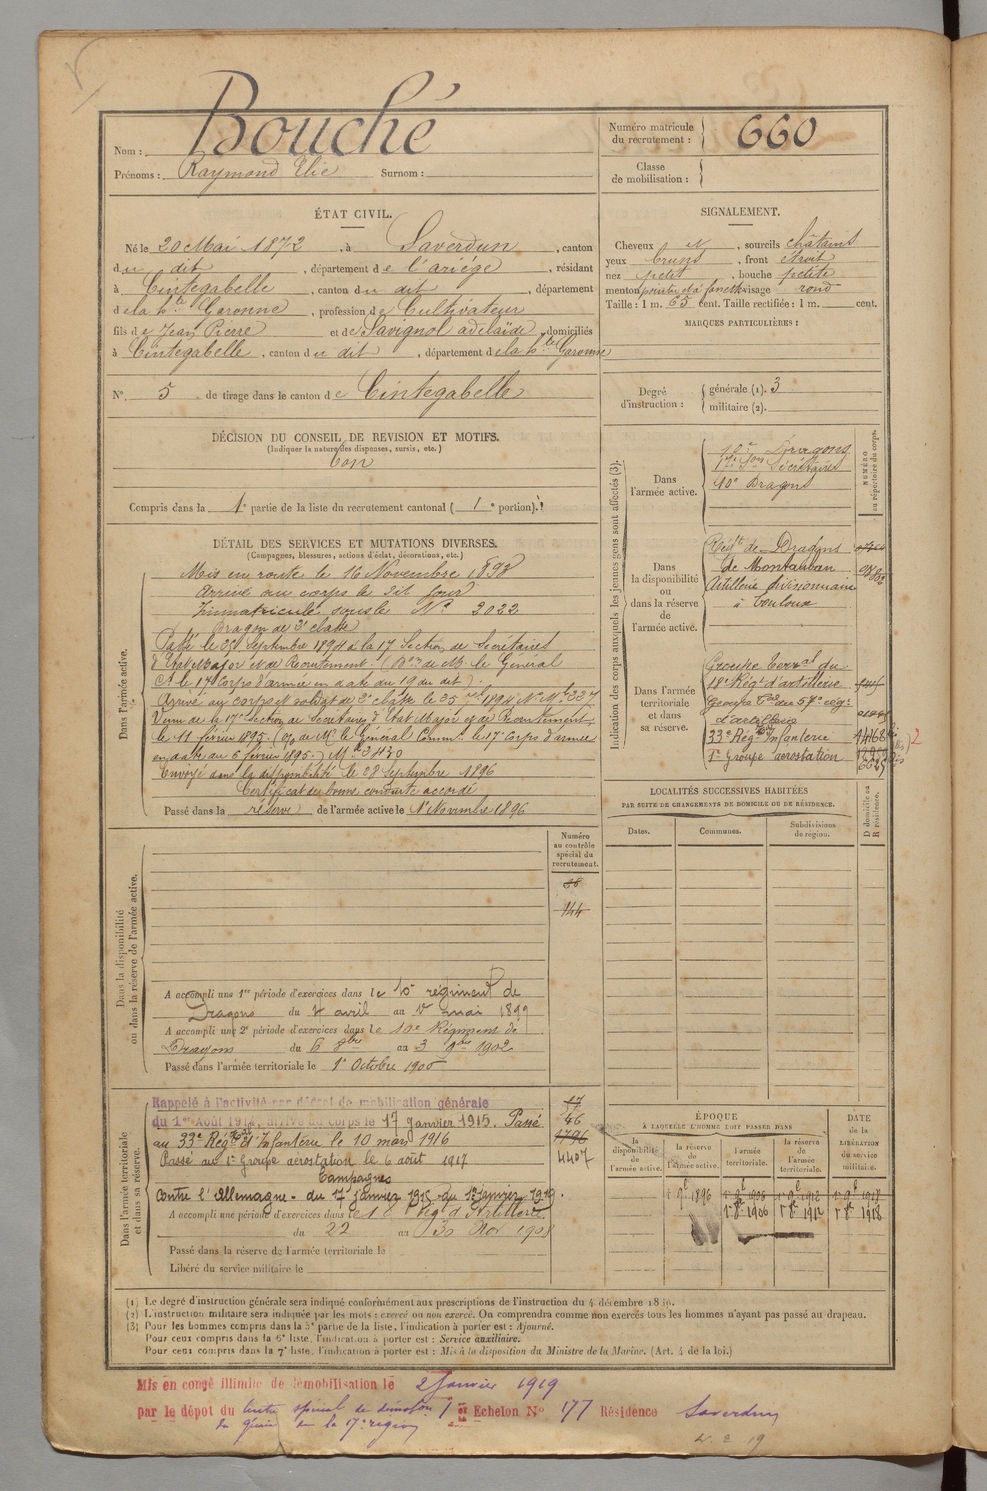 Nom : Bouché
Prénoms : Raymond Elie Surnom :
Numéro matricule du recrutement : 660
Classe de mobilisation :
ÉTAT CIVIL.
Né le 20 Mai 1872, à Saverdun, canton
du dit, département de l'ariége, résidant
à Cintegabelle, canton du dit, département
de la hte Garonne, profession de Cultivateur
fils de Jean Pierre et de Savignol adelaïde, domiciliés
à Cintegabelle, canton du dit, département de la hte Garonne
N°. 5 de tirage dans le canton de Cintegabelle
SIGNALEMENT.
Cheveux et, sourcils châtains
yeux bruns, front étroit
nez petit, bouche petite
menton pointu et à fossette visage rond
Taille : 1 m. 65 cent. Taille rectifiée : 1 m. cent.
MARQUES PARTICULIÈRES :
Degré d'instruction : générale (1). 3
militaire (2).
DÉCISION DU CONSEIL DE REVISION ET MOTIFS.
(Indiquer la nature des dispenses, sursis, etc.)
bon
Compris dans la 1e partie de la liste du recrutement cantonal ( 1e portion).
DÉTAIL DES SERVICES ET MUTATIONS DIVERSES.
(Campagnes, blessures, actions d'éclat, décorations, etc.)
Dans l'armée active.
Mis en route le 16 Novembre 1893
arrivé au corps le dit jour
Immatriculé sous le N° 2022
Dragon de 2e classe
Passé le 25 Septembre 1894 à la 17 Section de Secrétaires
d'Etat Major et de Recrutement (Don de Mr le Général
Ct le 17 Corps d'armée en date du 19 du dit).
Arrivé au corps et soldat de 2e classe le 25 7bre 1894 N° Mle 327
Venu de la 17e Section de Secrétaires d'Etat Major et de Recrutement
le 11 février 1895. (On de Mr le Général Commt le 17e Corps d'armée
en date du 6 février 1895.) Mle 3430
Envoyé dans la disponibilité le 28 Septembre 1896
Certificat de bonne conduite accordé
Passé dans la réserve de l'armée active le 1er Novembre 1896
Indication des corps auxquels les jeunes gens sont affectés (3).
NUMÉRO au répertoire du corps.
Dans l'armée active.
10e Dragons
17e Son Secrétaires
10e Dragons
Dans la disponibilité ou dans la réserve de l'armée active.
Régt de Dragons
de Montauban
Artillerie divisionnaire
à Toulouse
Dans l'armée territoriale et dans sa réserve.
Groupe terral du
18e Régt d'artillerie
Groupe tal du 57e régt
d'artillerie
33e Régt Infanterie
1er Groupe aérostation
2
LOCALITÉS SUCCESSIVES HABITÉES
PAR SUITE DE CHANGEMENTS DE DOMICILE OU DE RÉSIDENCE.
Dates. Communes. Subdivisions de région. D domicile ou R résidence.
Numéro au contrôle spécial du recrutement.
144
Dans la disponibilité ou dans la réserve de l'armée active.
A accompli une 1re période d'exercices dans le 10e régiment de
Dragons du 4 avril au 1er mai 1899
A accompli une 2e période d'exercices dans le 10e Régiment de
Dragons du 6 8bre au 3 9bre 1902
Passé dans l'armée territoriale le 1er Octobre 1906
Dans l'armée territoriale et dans sa réserve.
Rappelé à l'activité par décret de mobilisation générale
du 1er Août 1914, arrivé au corps le 17 janvier 1915. Passé
au 33e Régt tal d'Infanterie le 10 mars 1916
Passé au 1er Groupe aérostation le 6 août 1917
Campagnes
Contre l'Allemagne. du 17 janvier 1915 au 1er janvier 1919.
A accompli une période d'exercices dans le 18e Rég d'Artillerie
du 22 au 30 Nov 1908
Passé dans la réserve de l'armée territoriale le
Libéré du service militaire le
17
46
1796
4407
ÉPOQUE
A LAQUELLE L'HOMME DOIT PASSER DANS
la disponibilité de l'armée active. la réserve de l'armée active. l'armée territoriale. la réserve de l'armée territoriale.
DATE de la LIBÉRATION du service militaire.
1er 9e 1896
1er 8e 1906 1er 8e 1912 1er 8e 1918
(1) Le degré d'instruction générale sera indiqué conformément aux prescriptions de l'instruction du 4 décembre 1889.
(2) L'instruction militaire sera indiquée par les mots : exercé ou non exercé. On comprendra comme non exercés tous les hommes n'ayant pas passé au drapeau.
(3) Pour les hommes compris dans la 5e partie de la liste, l'indication à porter est : Ajourné.
Pour ceux compris dans la 6e liste, l'indication à porter est : Service auxiliaire.
Pour ceux compris dans la 7e liste, l'indication à porter est : Mis à la disposition du Ministre de la Marine. (Art. 4 de la loi.)
Mis en congé illimité de démobilisation le 2 Janvier 1919
par le dépôt du centre spécial de démobon 1er Echelon N° 177 Résidence Saverdun
de Génie de la 17e région